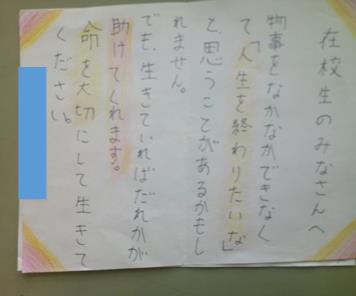 在校生のみなさんへ
物事をなかなかできなく
て「人生を終わりたいな」
と、思うことがあるかもし
れません。
でも、生きていればだれかが
助けてくれます。
命を大切にして生きて
ください。